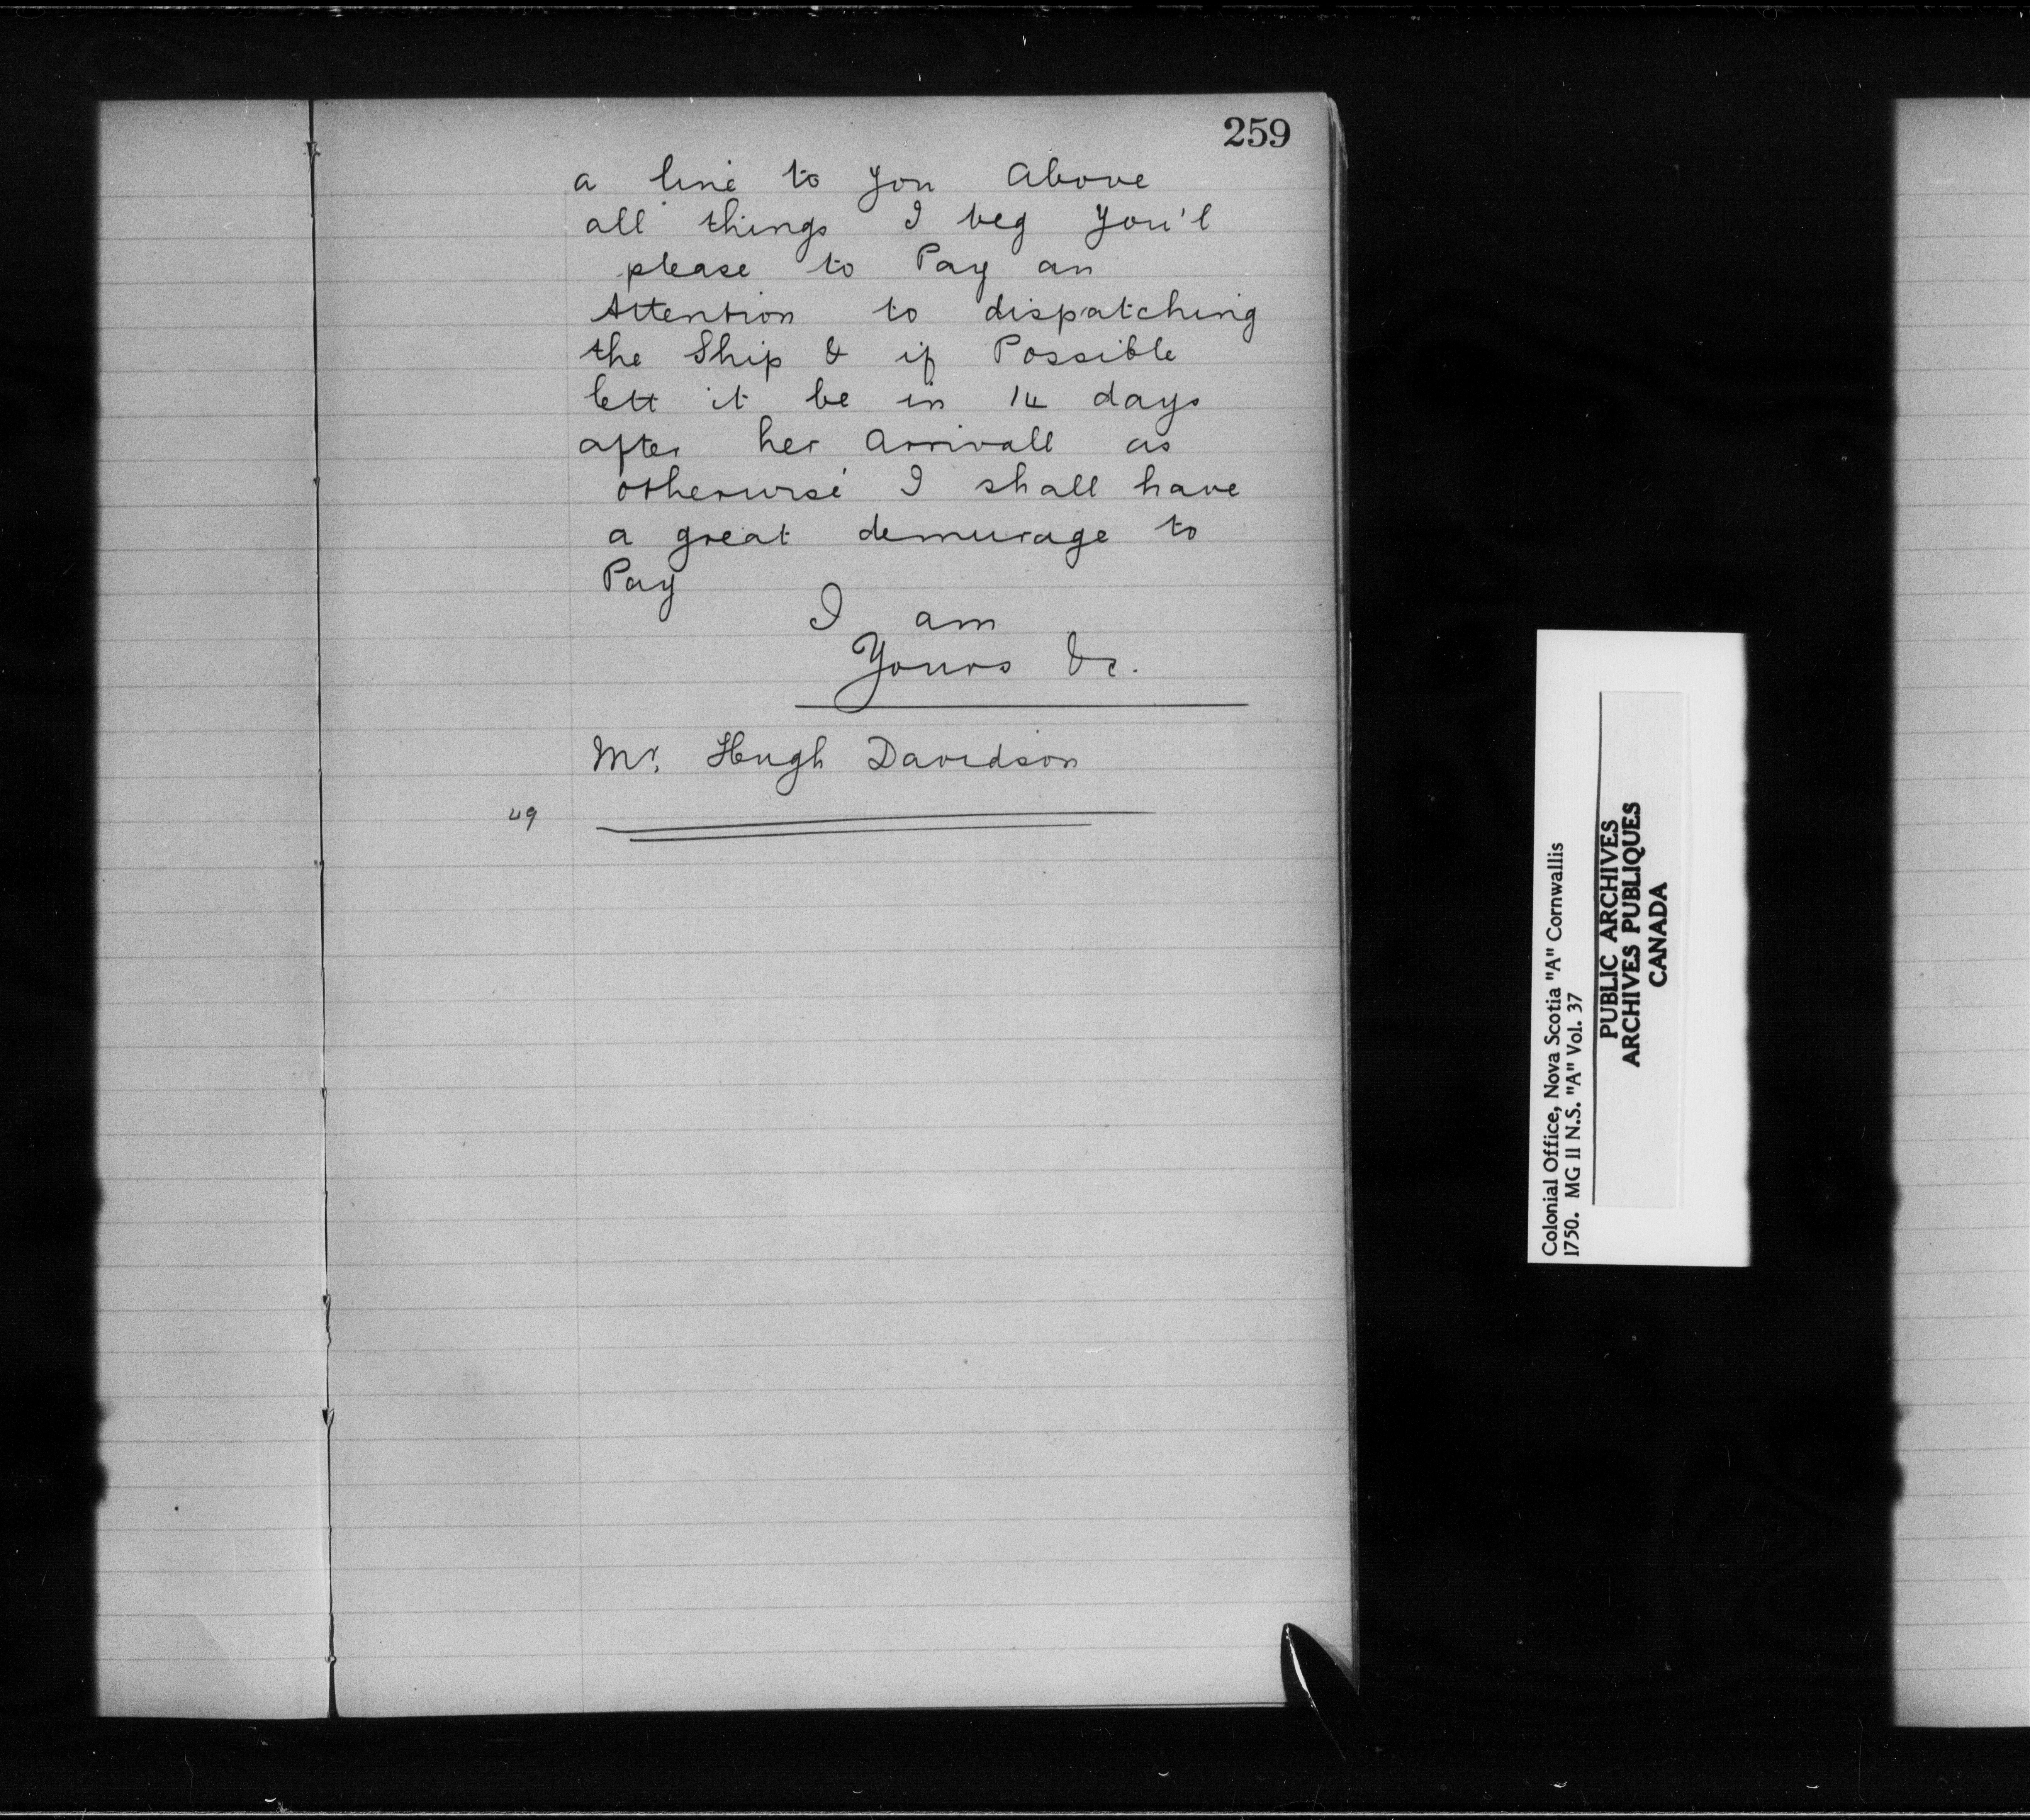 259
a line to You Above
all things I beg You'l
please to Pay an
Attention to dispatching
the Ship & if Possible
lett it be in 14 days
after her Arrivall as
otherwise I shall have
a great demurage to
Pay
I am
Yours &c.
Mr. Hugh Davidson
49
Colonial Office, Nova Scotia "A" Cornwallis
1750. MG 11 N.S. "A" Vol. 37
PUBLIC ARCHIVES
ARCHIVES PUBLIQUES
CANADA